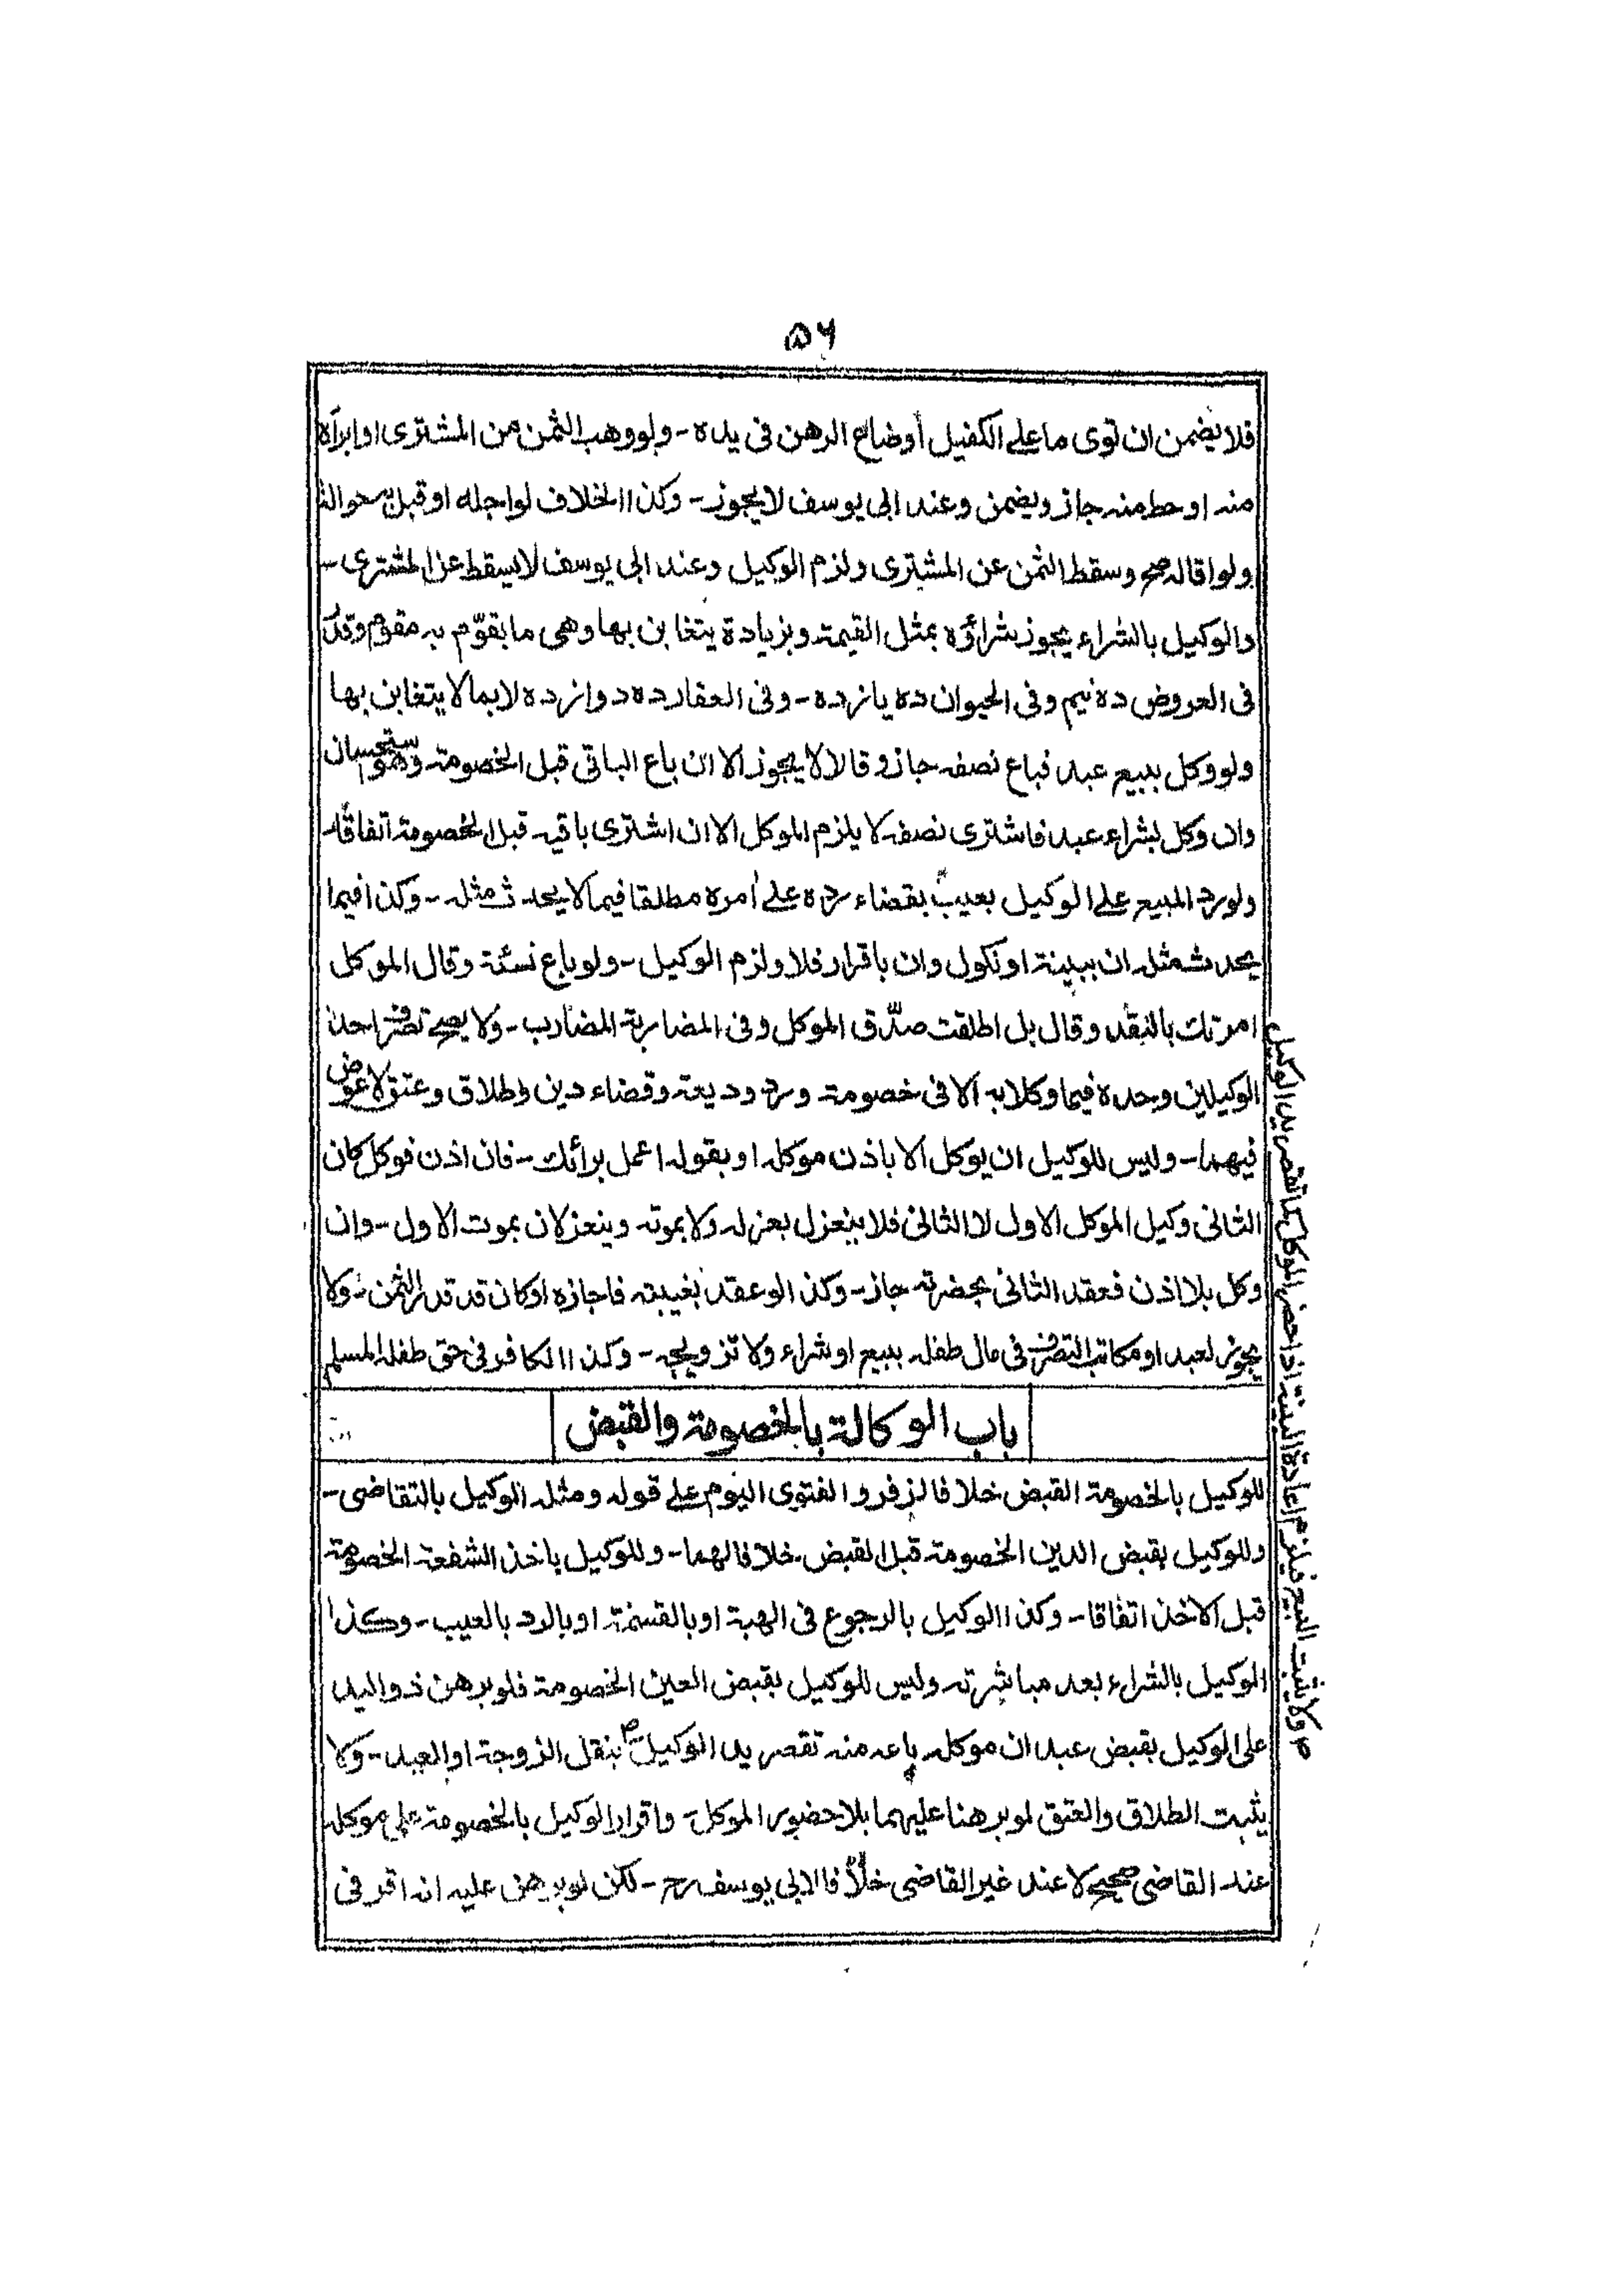 ٥٦
فلا يضمن ان توى ما على الكفيل أو ضاع الرهن فى يده - ولو وهب الثمن من المشترى او ابرأه
منه او حط منه جاز ويضمن وعند ابى يوسف لا يجوز - وكذا الخلاف لو اجله او قبل به حوالة
ولو اقاله صح وسقط الثمن عن المشترى ولزم الوكيل وعند ابى يوسف لا يسقط عن المشترى -
والوكيل بالشراء يجوز شراؤه بمثل القيمة وبزيادة يتغابن بها وهى ما يقوّم به مقوم وقدّر
فى العروض ده نيم وفى الحيوان ده يازده - وفى العقار ده دوازده لا بما لا يتغابن بها
ولو وكل ببيع عبد فباع نصفه جاز وقالا لا يجوز الا ان باع الباقى قبل الخصومة وهو استحسان
وان وكل بشراء عبد فاشترى نصفه لا يلزم الموكل الا ان اشترى باقيه قبل الخصومة اتفاقا
ولو رد المبيع على الوكيل بعيب بقضاء رده على أمره مطلقا فيما لا يحدث مثله - وكذا فيما
يحدث مثله ان ببينة او نكول وان باقرار فلا ولزم الوكيل - ولو باع نسئة وقال الموكل
امرتك بالنقد وقال بل اطلقت صدّق الموكل وفى المضاربة المضارب - ولا يصح تصرف احد
الوكيلين وحده فيما وكلا به الا فى خصومة ورد وديعة وقضاء دين وطلاق وعتق لا عوض
فيهما - وليس للوكيل ان يوكل الا باذن موكله او بقوله اعمل برأئك - فان اذن فوكل كان
الثانى وكيل الموكل الاول لا الثانى فلا ينعزل بعزله ولا بموته وينعزلان بموت الاول - وان
وكل بلا اذن فعقد الثانى بحضرته جاز - وكذا لو عقد بغيبته فاجازه او كان قد قدر الثمن - ولا
يجوز لعبد او مكاتب التصرف فى مال طفله ببيع او شراء ولا تزويجه - وكذا الكافر فى حق طفله المسلم
باب الوكالة بالخصومة والقبض
للوكيل بالخصومة القبض خلافا لزفر والفتوى اليوم على قوله ومثله الوكيل بالتقاضى -
وللوكيل بقبض الدين الخصومة قبل القبض خلافا لهما - وللوكيل باخذ الشفعة الخصومة
قبل الاخذ اتفاقا - وكذا الوكيل بالرجوع فى الهبة او بالقسمة او بالرد بالعيب - وكذا
الوكيل بالشراء بعد مباشرته وليس للوكيل بقبض العين الخصومة فلو برهن ذو اليد
على الوكيل بقبض عبد ان موكله باعه منه تقصر يد الوكيل ص بنقل الزوجة او العبد - ولا
يثبت الطلاق والعتق لو برهنا عليهما بلا حضور الموكل - واقرار الوكيل بالخصومة على موكله
عند القاضى صحيح لا عند غير القاضى خلافا لابى يوسف رح - لكن لو برهن عليه انه اقر فى
ص ولا يثبت البيع فيلزم اعادة البينة اذا حضر الموكل كما تقصر يد الوكيل